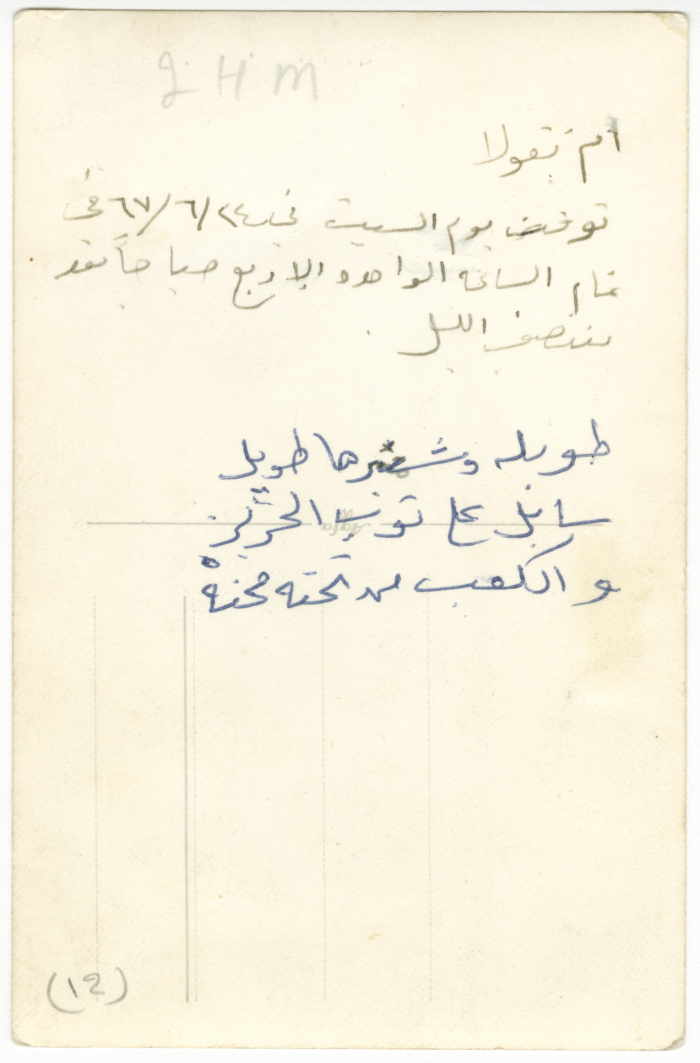 J H M
ام نقولا
توفت يوم السبت في ٢٤/٦/٦٧ في
تمام الساعه الواحده الا ربع صباحاً بعد
منتصف الليل.
طويله وشعرها طويل
سابل على توب الحرير
و الكعب من تحته محنة
Agfa
(١٢)